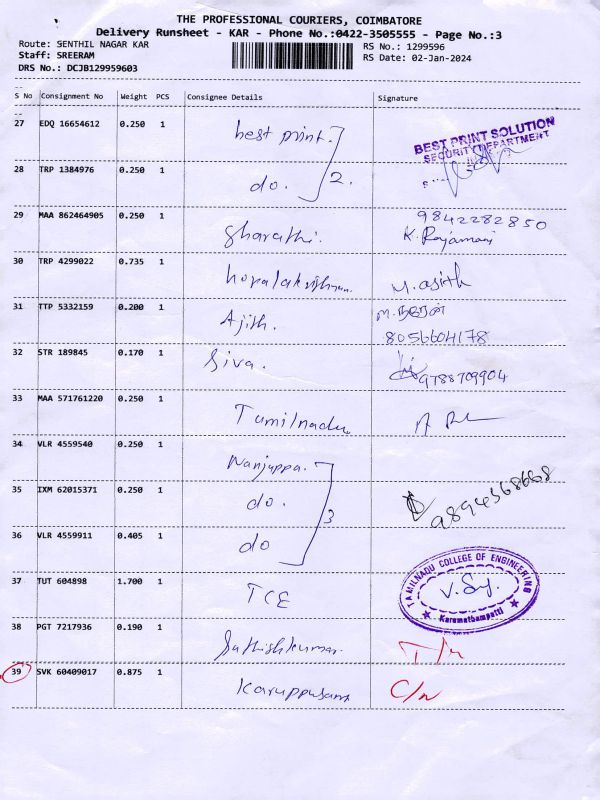 THE PROFESSIONAL COURIERS, COIMBATORE
Delivery Runsheet - KAR - Phone No.:0422-3505555 - Page No.:3
Route: SENTHIL NAGAR KAR
RS No.: 1299596
Staff: SREERAM
RS Date: 02-Jan-2024
DRS No.: DCJB129959603
S No Consignment No Weight PCS Consignee Details Signature
27 EDQ 16654612 0.250 1 best print.
BEST PRINT SOLUTION
SECURITY DEPARTMENT
28 TRP 1384976 0.250 1 do. 2.
29 MAA 862464905 0.250 1 Sharathi. 9842282850
K. Rajamani
30 TRP 4299022 0.735 1 Gopalakrishnan. M. Ajith
31 TTP 5332159 0.200 1 Ajith.
8056604178
32 STR 189845 0.170 1 Siva. 9788709904
33 MAA 571761220 0.250 1 Tamilnadu
34 VLR 4559540 0.250 1 Nanjuppa.
35 IXM 62015371 0.250 1 do. 3 9894568668
36 VLR 4559911 0.405 1 do
37 TUT 604898 1.700 1 TCE
TAMILNADU COLLEGE OF ENGINEERING
V. Sy.
Karumathampatti
38 PGT 7217936 0.190 1 Sathishkumar.
39 SVK 60409017 0.875 1 Karuppusami C/n